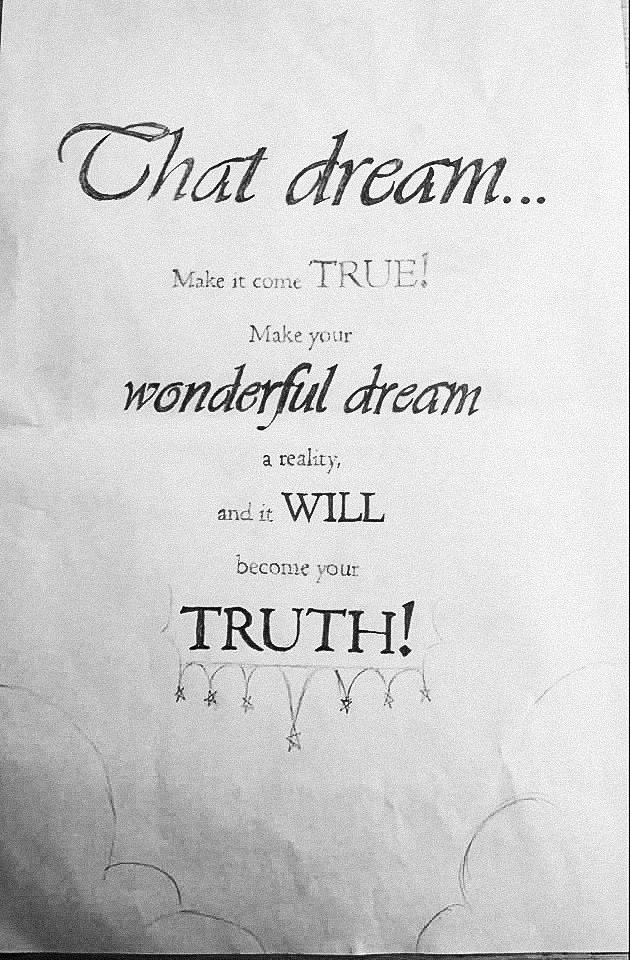 That dream...
Make it come TRUE!
Make your
wonderful dream
a reality,
and it WILL
become your
TRUTH!